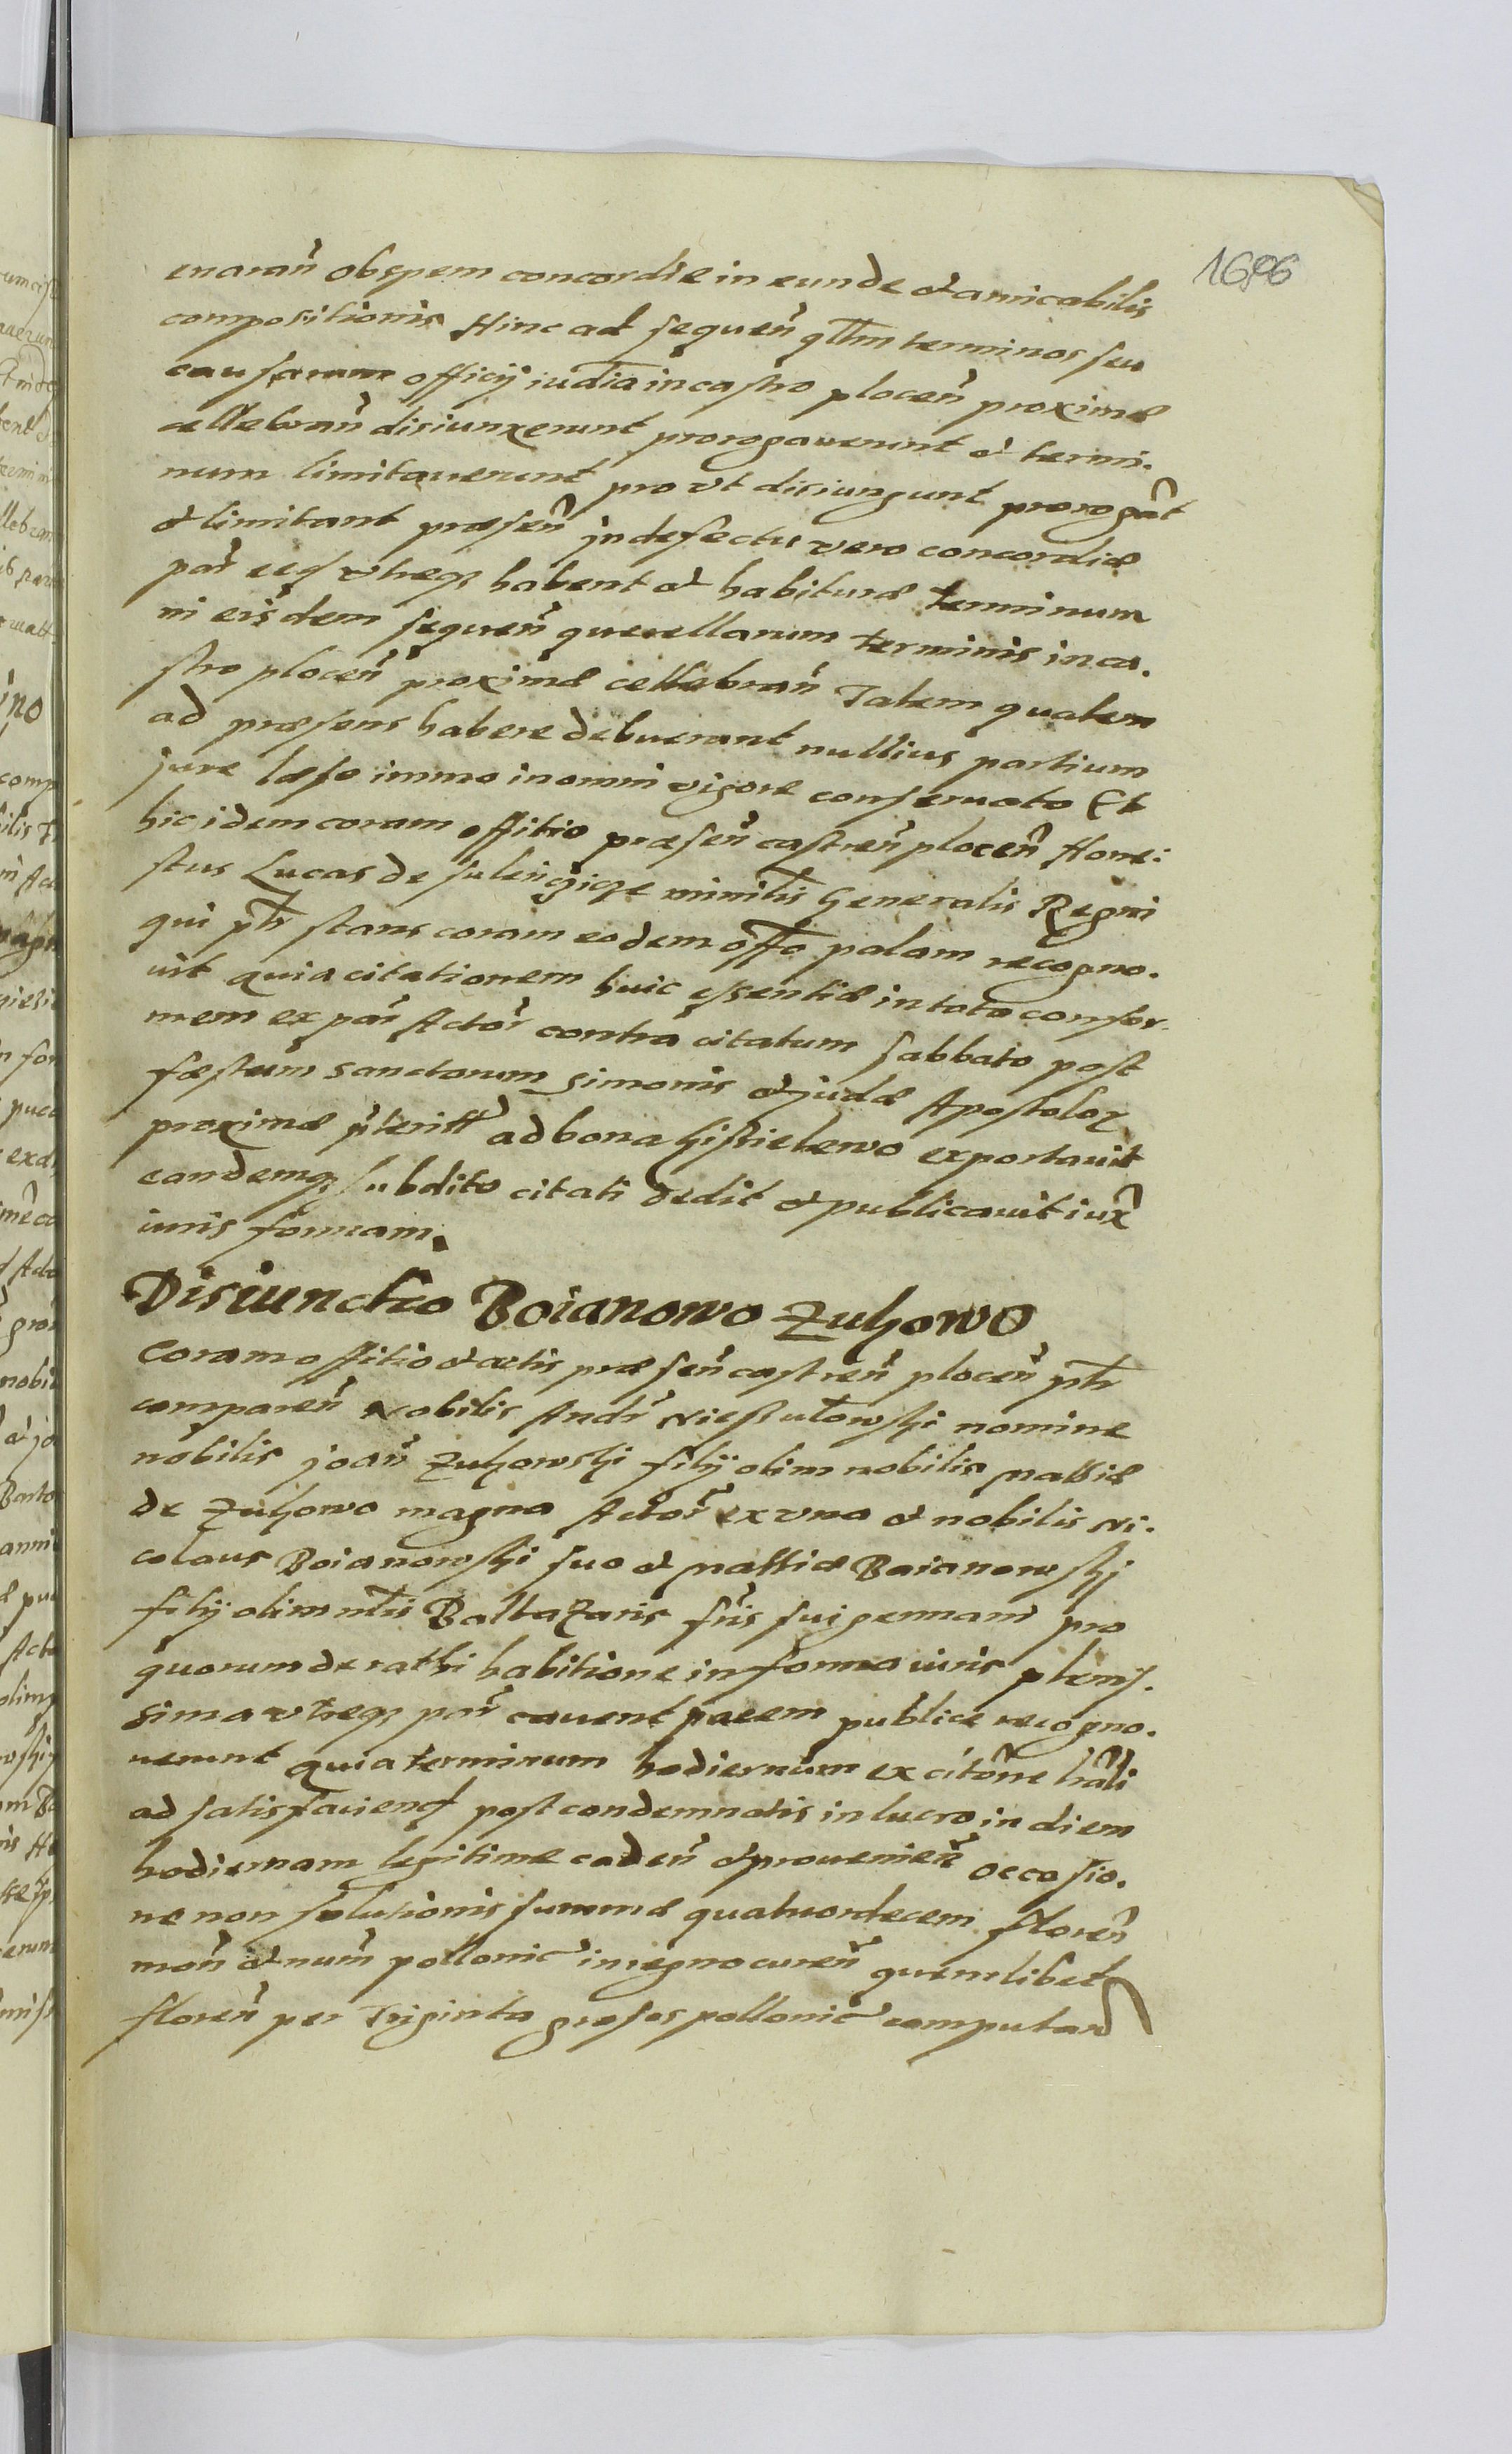 1696
enaran̄ ob spem concordiæ in eunde et amicabilis
compositionis Hinc ad sequen̄ qllm terminos seu
causarum officij iudicia in castro plocen̄ proximæ
cellebran̄ disiunxerunt prorogauerunt et termi-
num limitauerunt pro vt disiungunt prorogāt
et limitant præsen̄ jn defectu vero concordiæ
par̄ vtræq; habent et habituræ terminum
in eisdem sequen̄ querellarum terminis in ca-
stro plocen̄ proximæ cellebran̄ Talem qualem
ad præsens habere debuerant nullius partium
jure læso immo in omni vigore conseruato Et
hic idem coram offitio præsen̄ castren̄ plocen̄ Hone:
stus Lucas de sulenczicze ministr̄lis Generalis Regni
qui pr̄ stans coram eodem offo palam recogno-
uit quia citationem huic essentiæ in toto confor-
mem ex par̄ Actor̄ contra citatum sabbato post
fæstum sanctorum simonis et judæ Apostoloꝝ
proximæ p̄terit̄ ad bona Gisticlewo exportauit
eandemq; subdito citati dedit et publicauit iux̄
iuris formam.
Disiunctio Boianowo Zuhowo
Coram offitio et actis præsen̄ castren̄ plocen̄ pr̄
comparen̄ Nobilis Andr̄ Niestulowski nomine
nobilis joan̄ Zuhowski filij olim nobilis Mathiæ
de Zuhowo magno Actor̄ ex vna et nobilis Ni-
colaus Boianowski suo et Mathiæ Boianowskj
filij olim nlis Baltazaris fr̄is sui germani pro
quorum de rathi habitione in forma iuris plenis-
sima vtræq; par̄ cauent parem publice recogno-
uerunt quia terminum hodiernum ex citōne lrāli
ad satisfaciend̄ post condemnatis in lucro in diem
hodiernam legitime caden̄ et prouenien̄ occasio-
ne non solutionis summæ quatuordecem floren̄
mon̄ et num̄ pollonic̄ in regno curen̄ quemlibet
floren̄ per Triginta grosos pollonic̄ computan̄